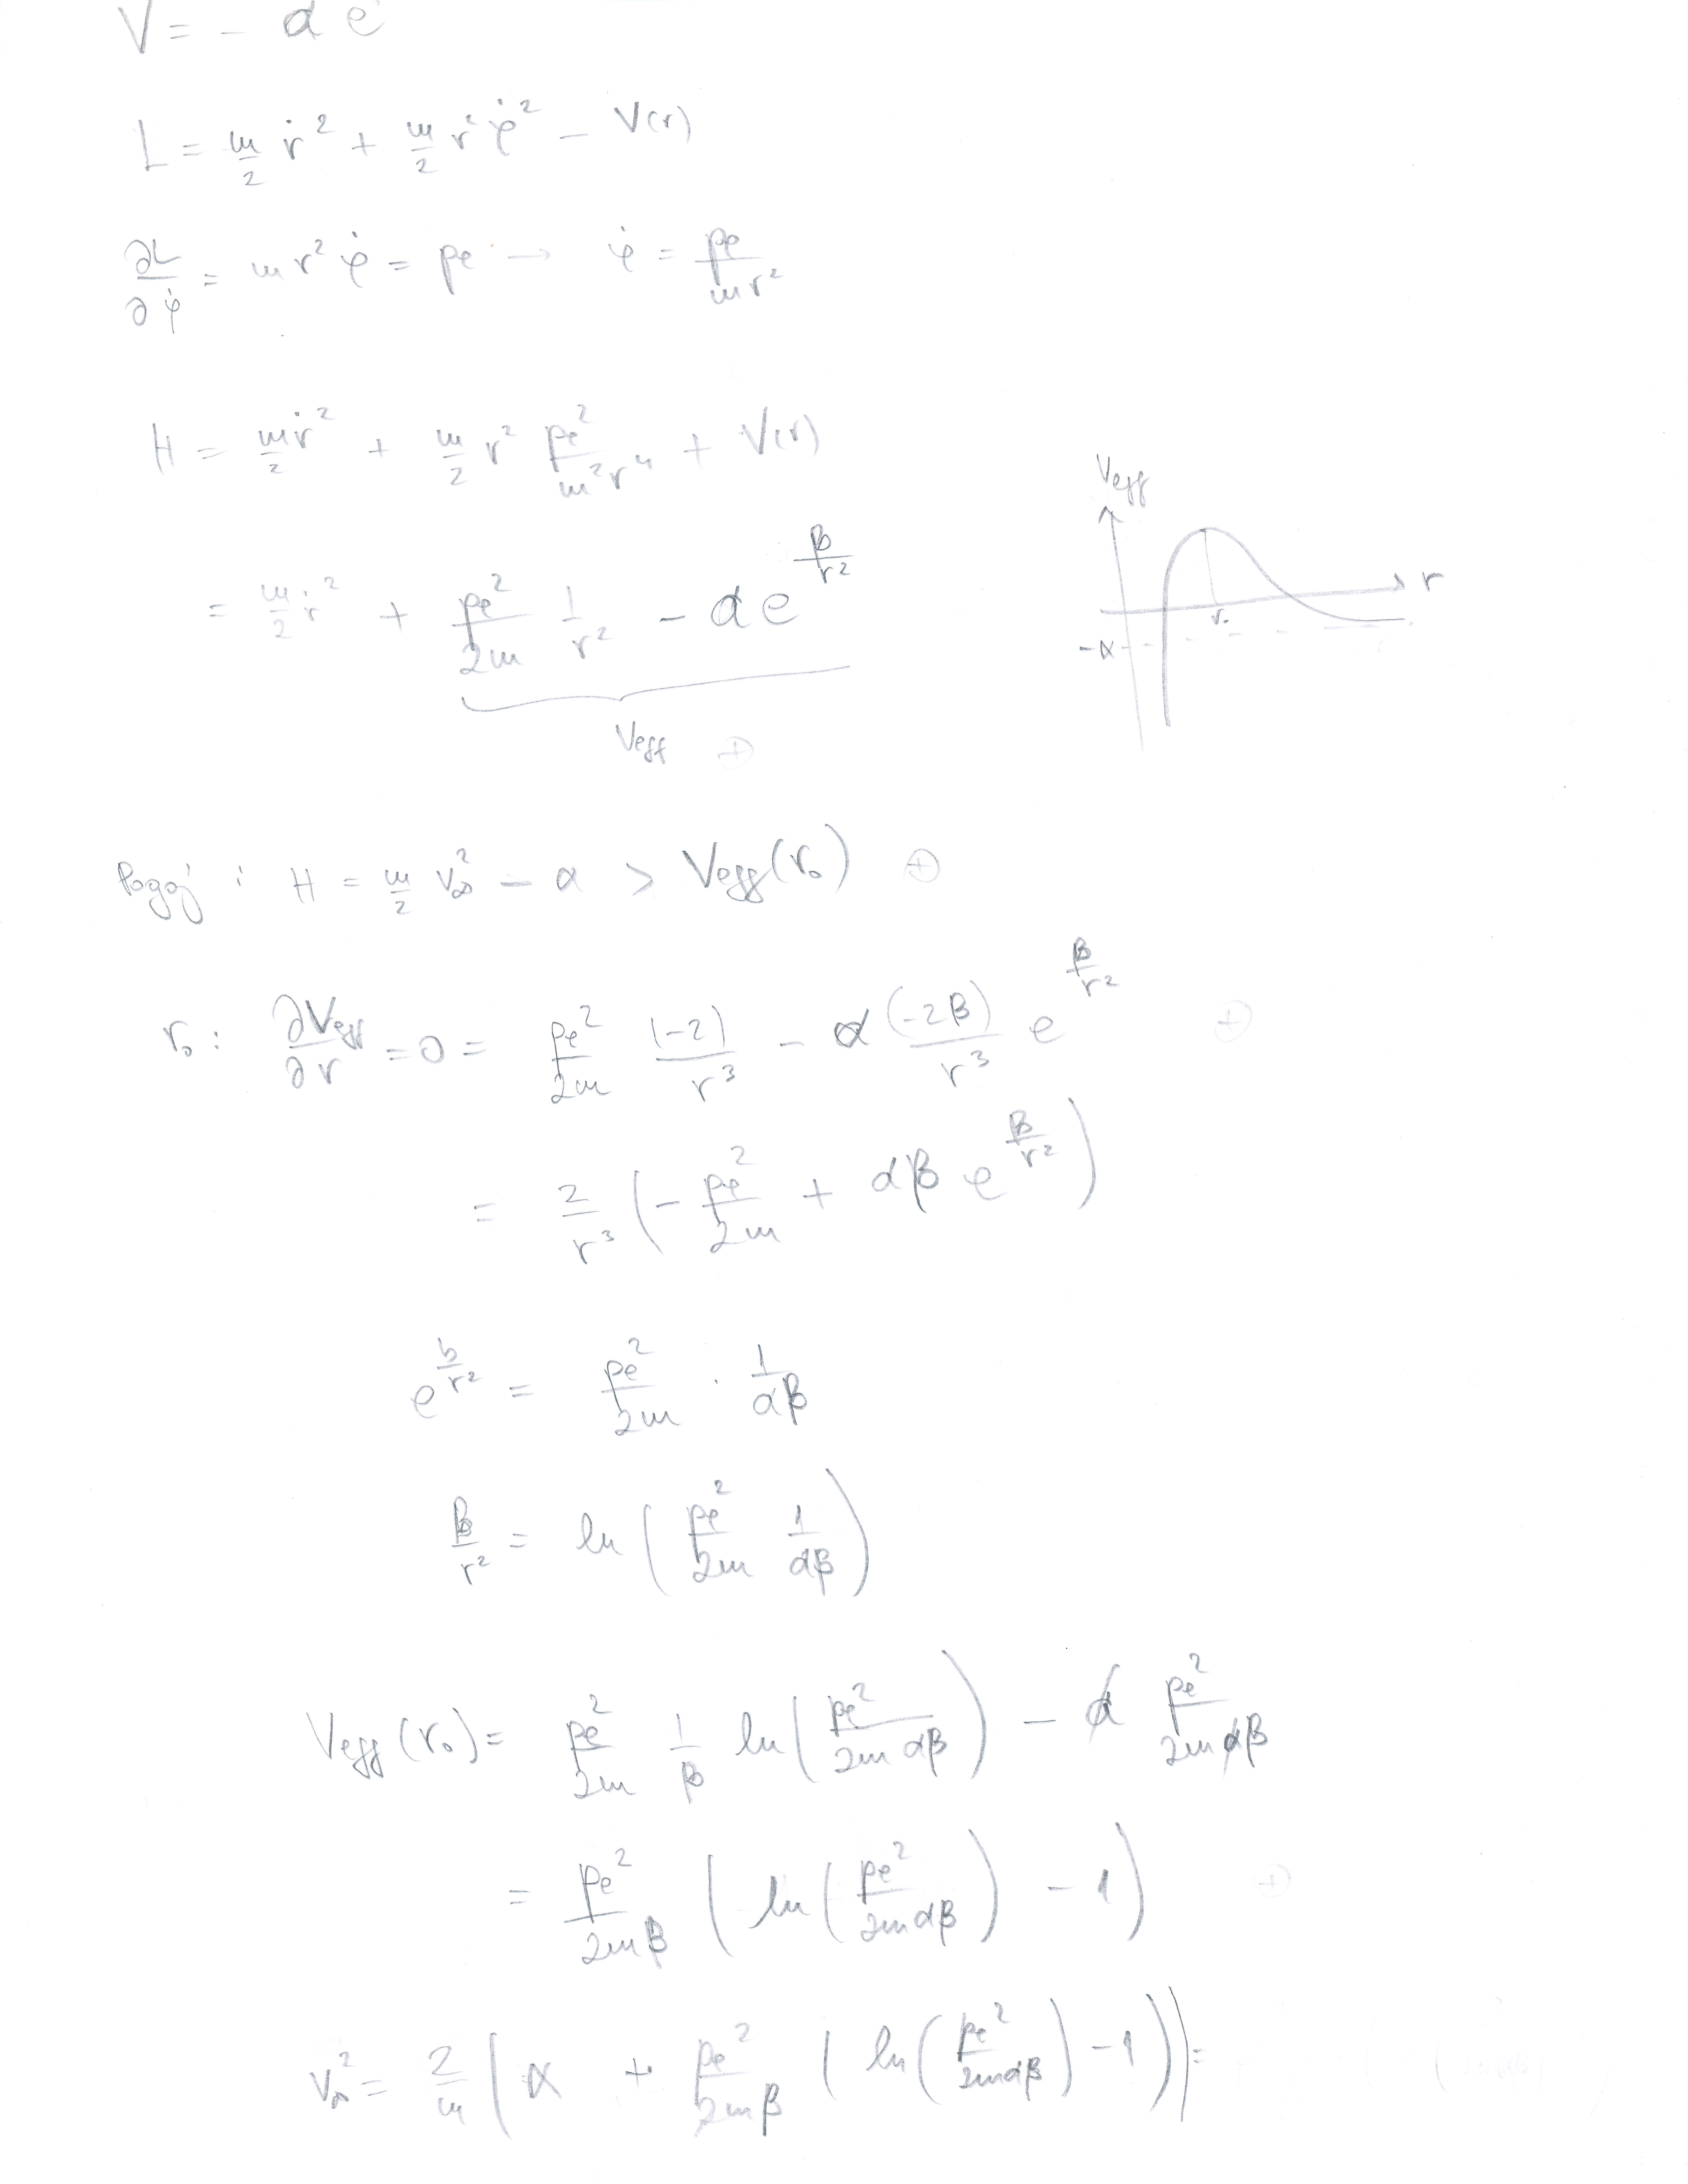 V = - α e
L = m/2 ṙ² + m/2 r² φ̇² - V(r)
∂L/∂φ̇ = m r² φ̇ = pφ → φ̇ = pφ/(m r²)
H = m ṙ²/2 + m/2 r² pφ²/(m² r⁴) + V(r)
Veff
= m/2 ṙ² + pφ²/2m 1/r² - α e^(β/r²)
r
r₀
-α
Veff ⊕
Pogoj : H = m/2 v∞² - α > Veff(r₀) ⊕
r₀ : ∂Veff/∂r = 0 = pφ²/2m (-2)/r³ - α (-2β)/r³ e^(β/r²) ⊕
= 2/r³ (- pφ²/2m + αβ e^(β/r²))
e^(b/r²) = pφ²/2m · 1/αβ
β/r² = ln(pφ²/2m 1/αβ)
Veff(r₀) = pφ²/2m 1/β ln(pφ²/2mαβ) - α pφ²/2mαβ
= pφ²/2mβ (ln(pφ²/2mαβ) - 1) ⊕
v∞² = 2/m (α + pφ²/2mβ (ln(pφ²/2mαβ) - 1)) =